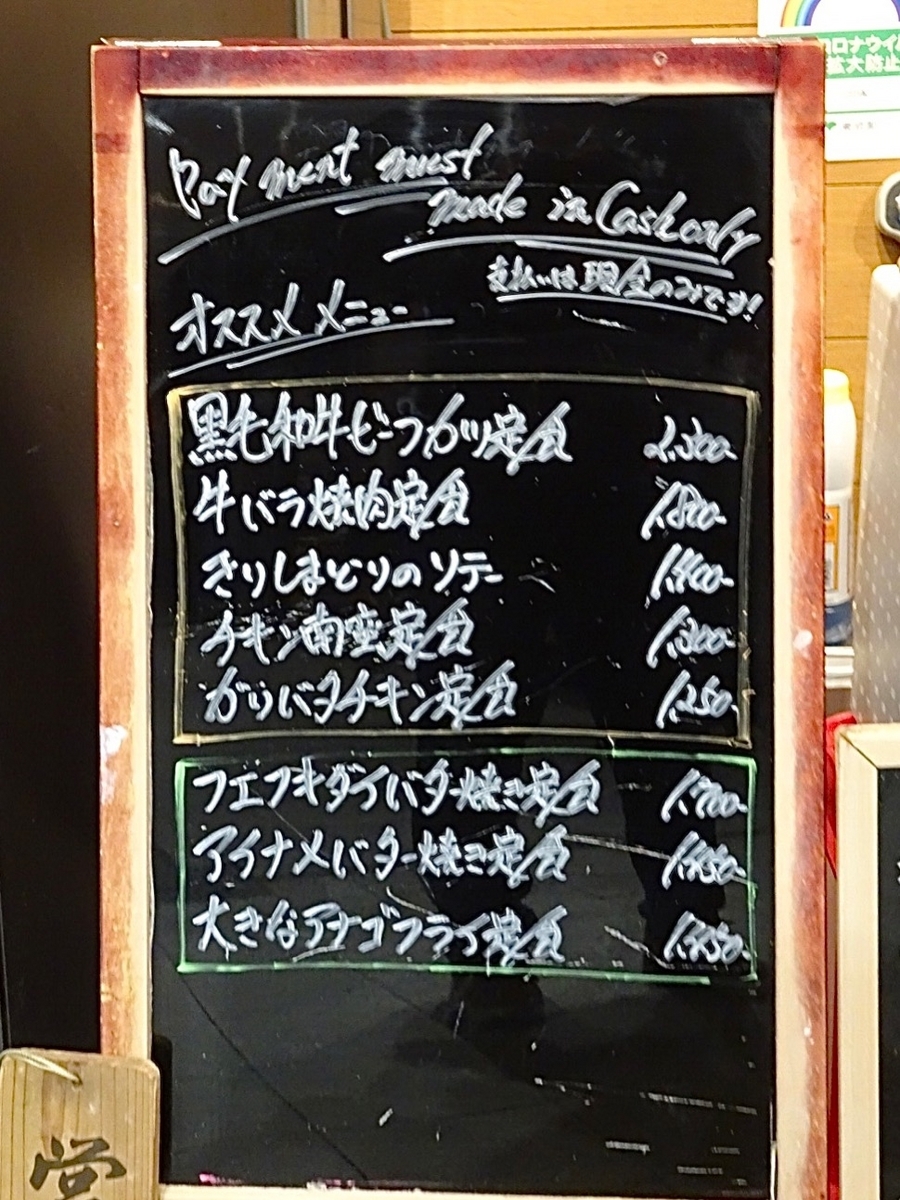 コロナウイ
拡大防止
Payment must
made in Cash only
支払いは現金のみです!
オススメメニュー
黒毛和牛ビーフカツ定食 2,300-
牛バラ焼肉定食 1,800-
きりしまどりのソテー 1,400-
チキン南蛮定食 1,300-
がりバタチキン定食 1,250-
フエフキダイバター焼き定食 1,700-
アイナメバター焼き定食 1,450-
大きなアナゴフライ定食 1,450-
営